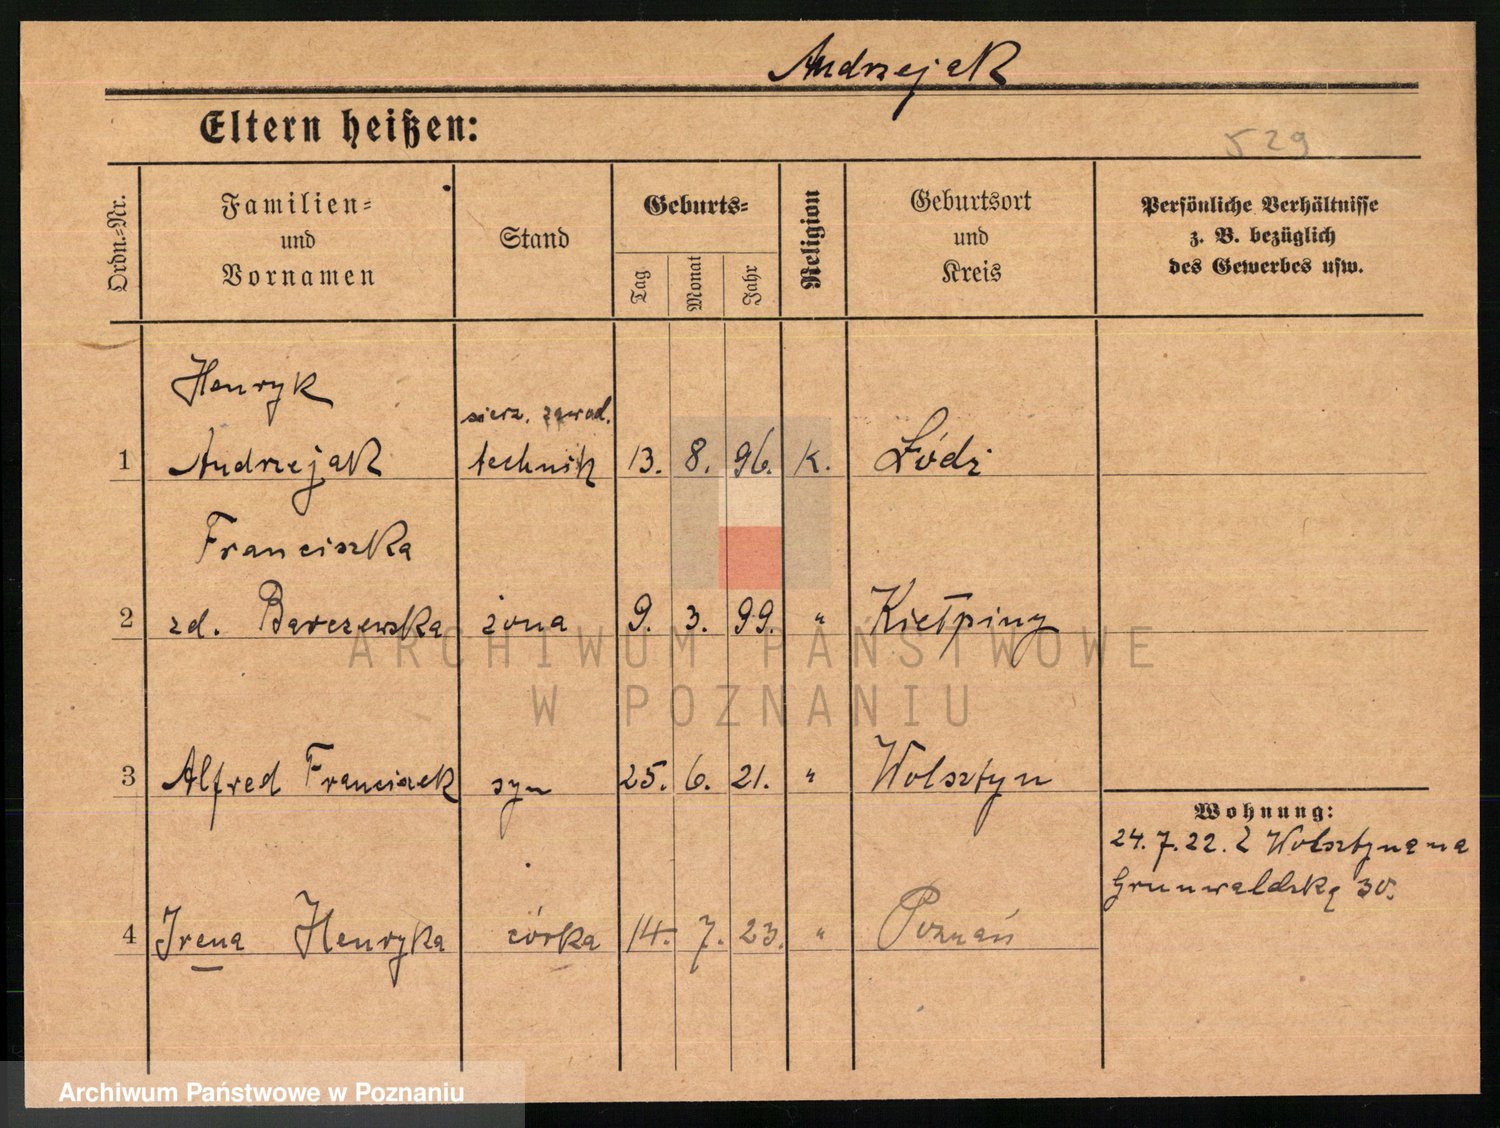 Andrzejak
Eltern heißen:
529
Ordn.-Nr.
Familien-
und
Vornamen
Stand
Geburts-
Tag
Monat
Jahr
Religion
Geburtsort
und
Kreis
Persönliche Verhältnisse
z. B. bezüglich
des Gewerbes usw.
Henryk
sierż. zawod.
1 Andrzejak technik 13. 8. 96. K. Łódź
Franciszka
2 zd. Barczewska żona 9. 3. 99. " Kiełpiny
3 Alfred Franciszek syn 25. 6. 21. " Wolsztyn
Wohnung:
24.7.22. Z Wolsztyna na
Grunwaldzką 30.
4 Irena Henryka córka 14. 7. 23. " Poznań
ARCHIWUM PAŃSTWOWE
W POZNANIU
Archiwum Państwowe w Poznaniu